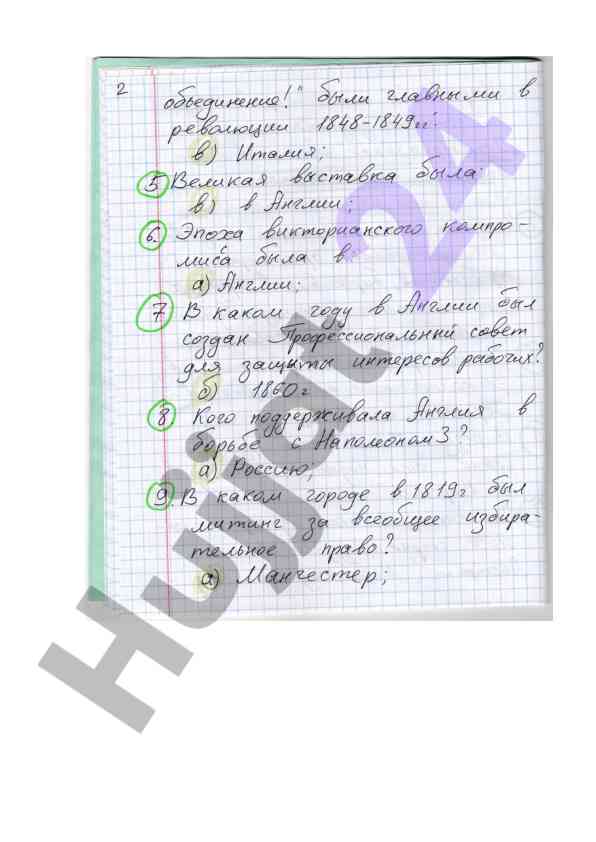 2
объединение!" были главными в
революции 1848-1849гг:
в) Италия;
5 Великая выставка была:
в) в Англии;
6. Эпоха викторианского компро-
мисса была в
а) Англии;
7 В каком году в Англии был
создан Профессиональный совет
для защиты интересов рабочих?
б) 1860г
8 Кого поддерживала Англия в
борьбе с Наполеоном 3?
а) Россию;
9. В каком городе в 1819г был
митинг за всеобщее избира-
тельное право?
а) Манчестер;
Hujjat 24